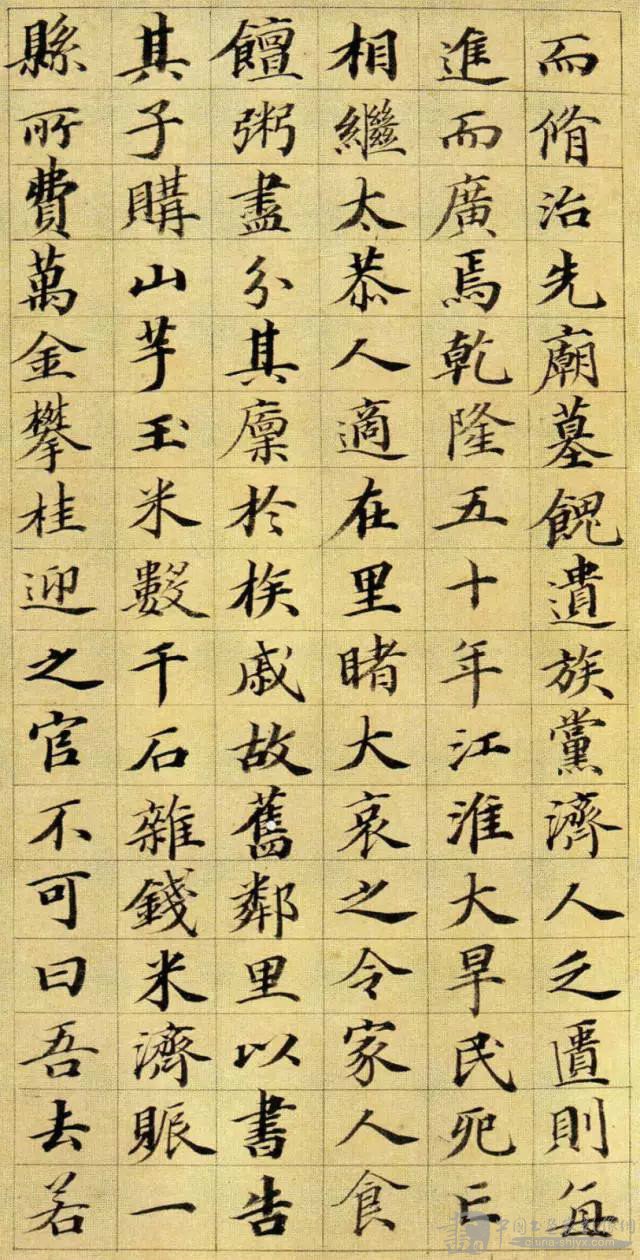 而脩治先廟墓餽遺族黨濟人乏匱則每
進而廣焉乾隆五十年江淮大旱民死亡
相繼太恭人適在里睹大哀之令家人食
饘粥盡分其廩於族戚故舊鄰里以書告
其子購山芋玉米數千石雜錢米濟賑一
縣所費萬金攀桂迎之官不可曰吾去若